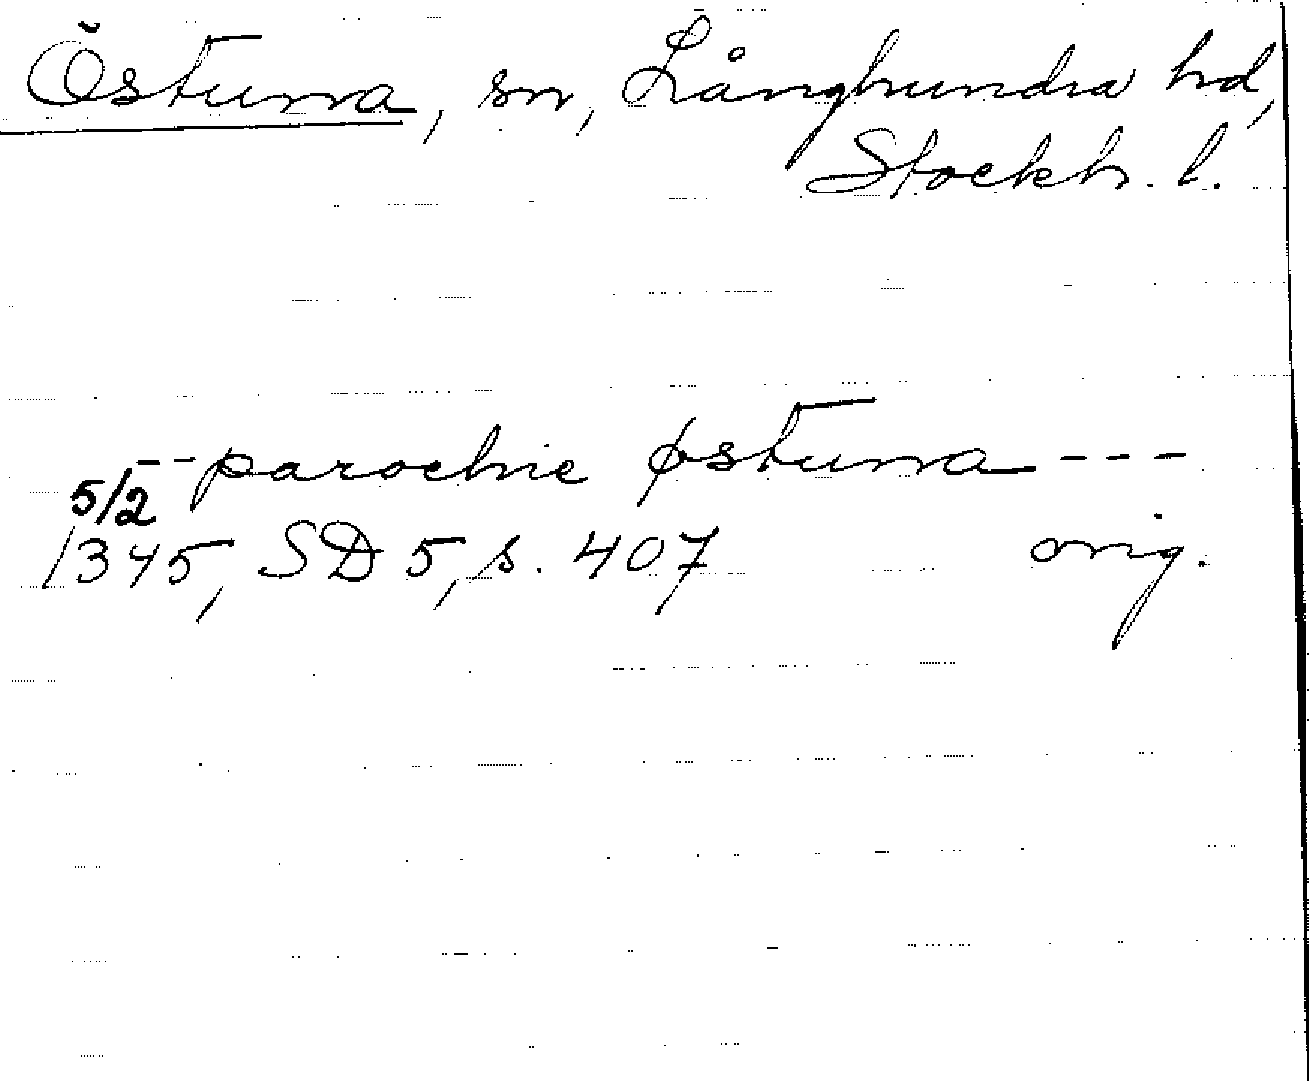 Östuna, sn, Långhundra hd,
Stockh. l.
-- parochie østuna ---
5/2
1345, SD 5, s. 407 orig.